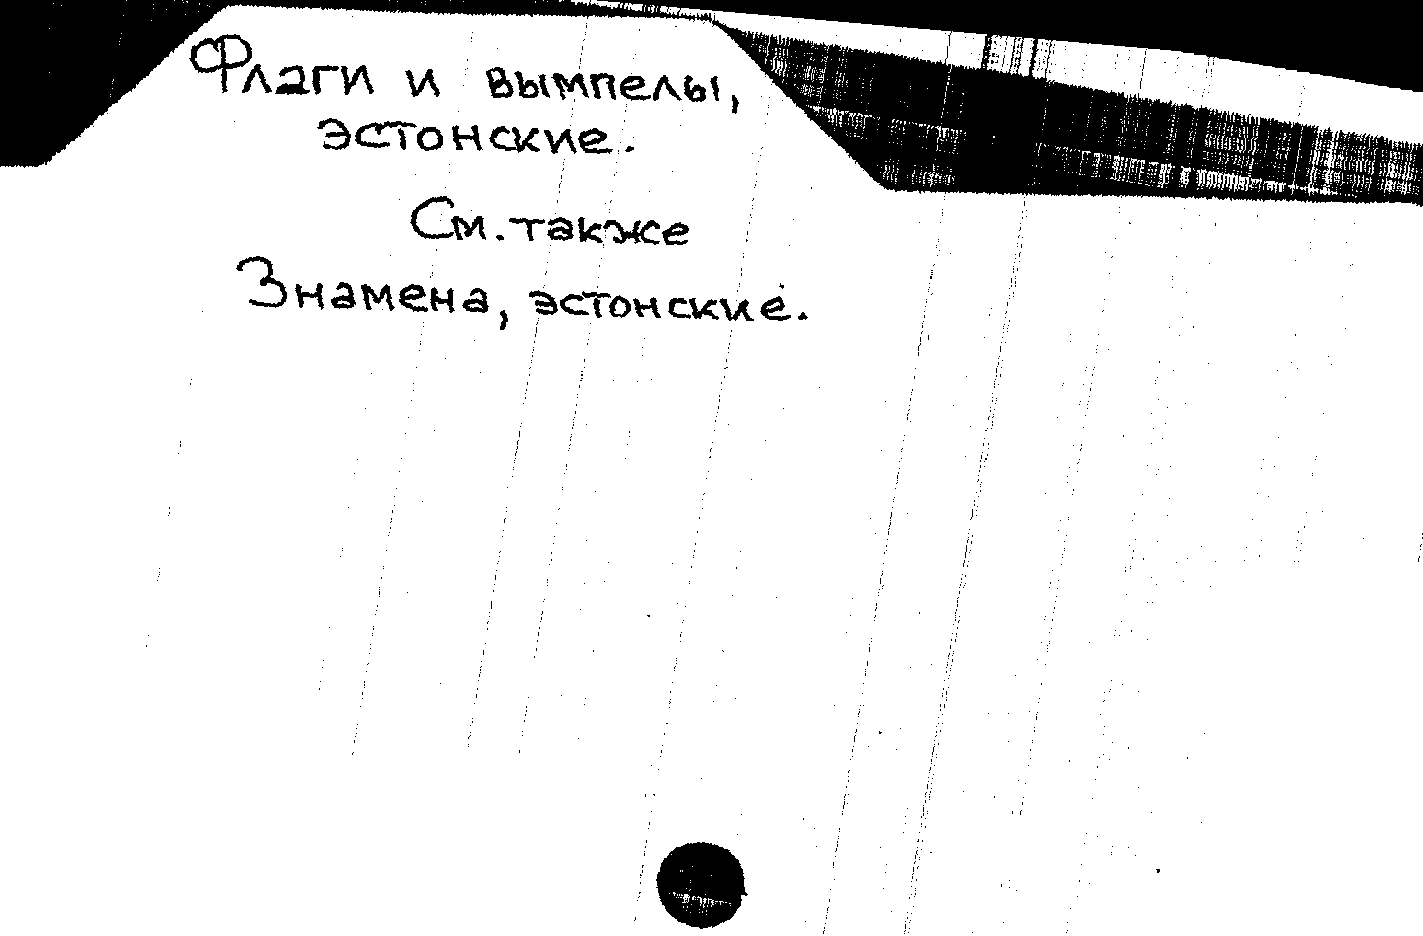 Флаги и вымпелы,
эстонские.
См. также
Знамена, эстонские.